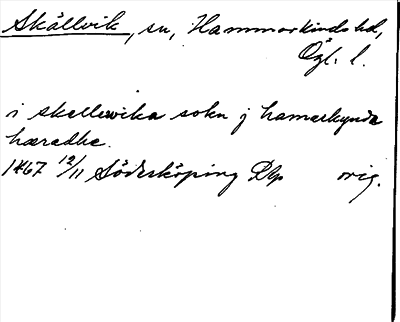 Skällvik, sn, Hammarkinds hd,
Ögl. l.
i skellewika sokn j hamarkynda
hæradhe.
1467 12/11 Söderköping Dbp orig.